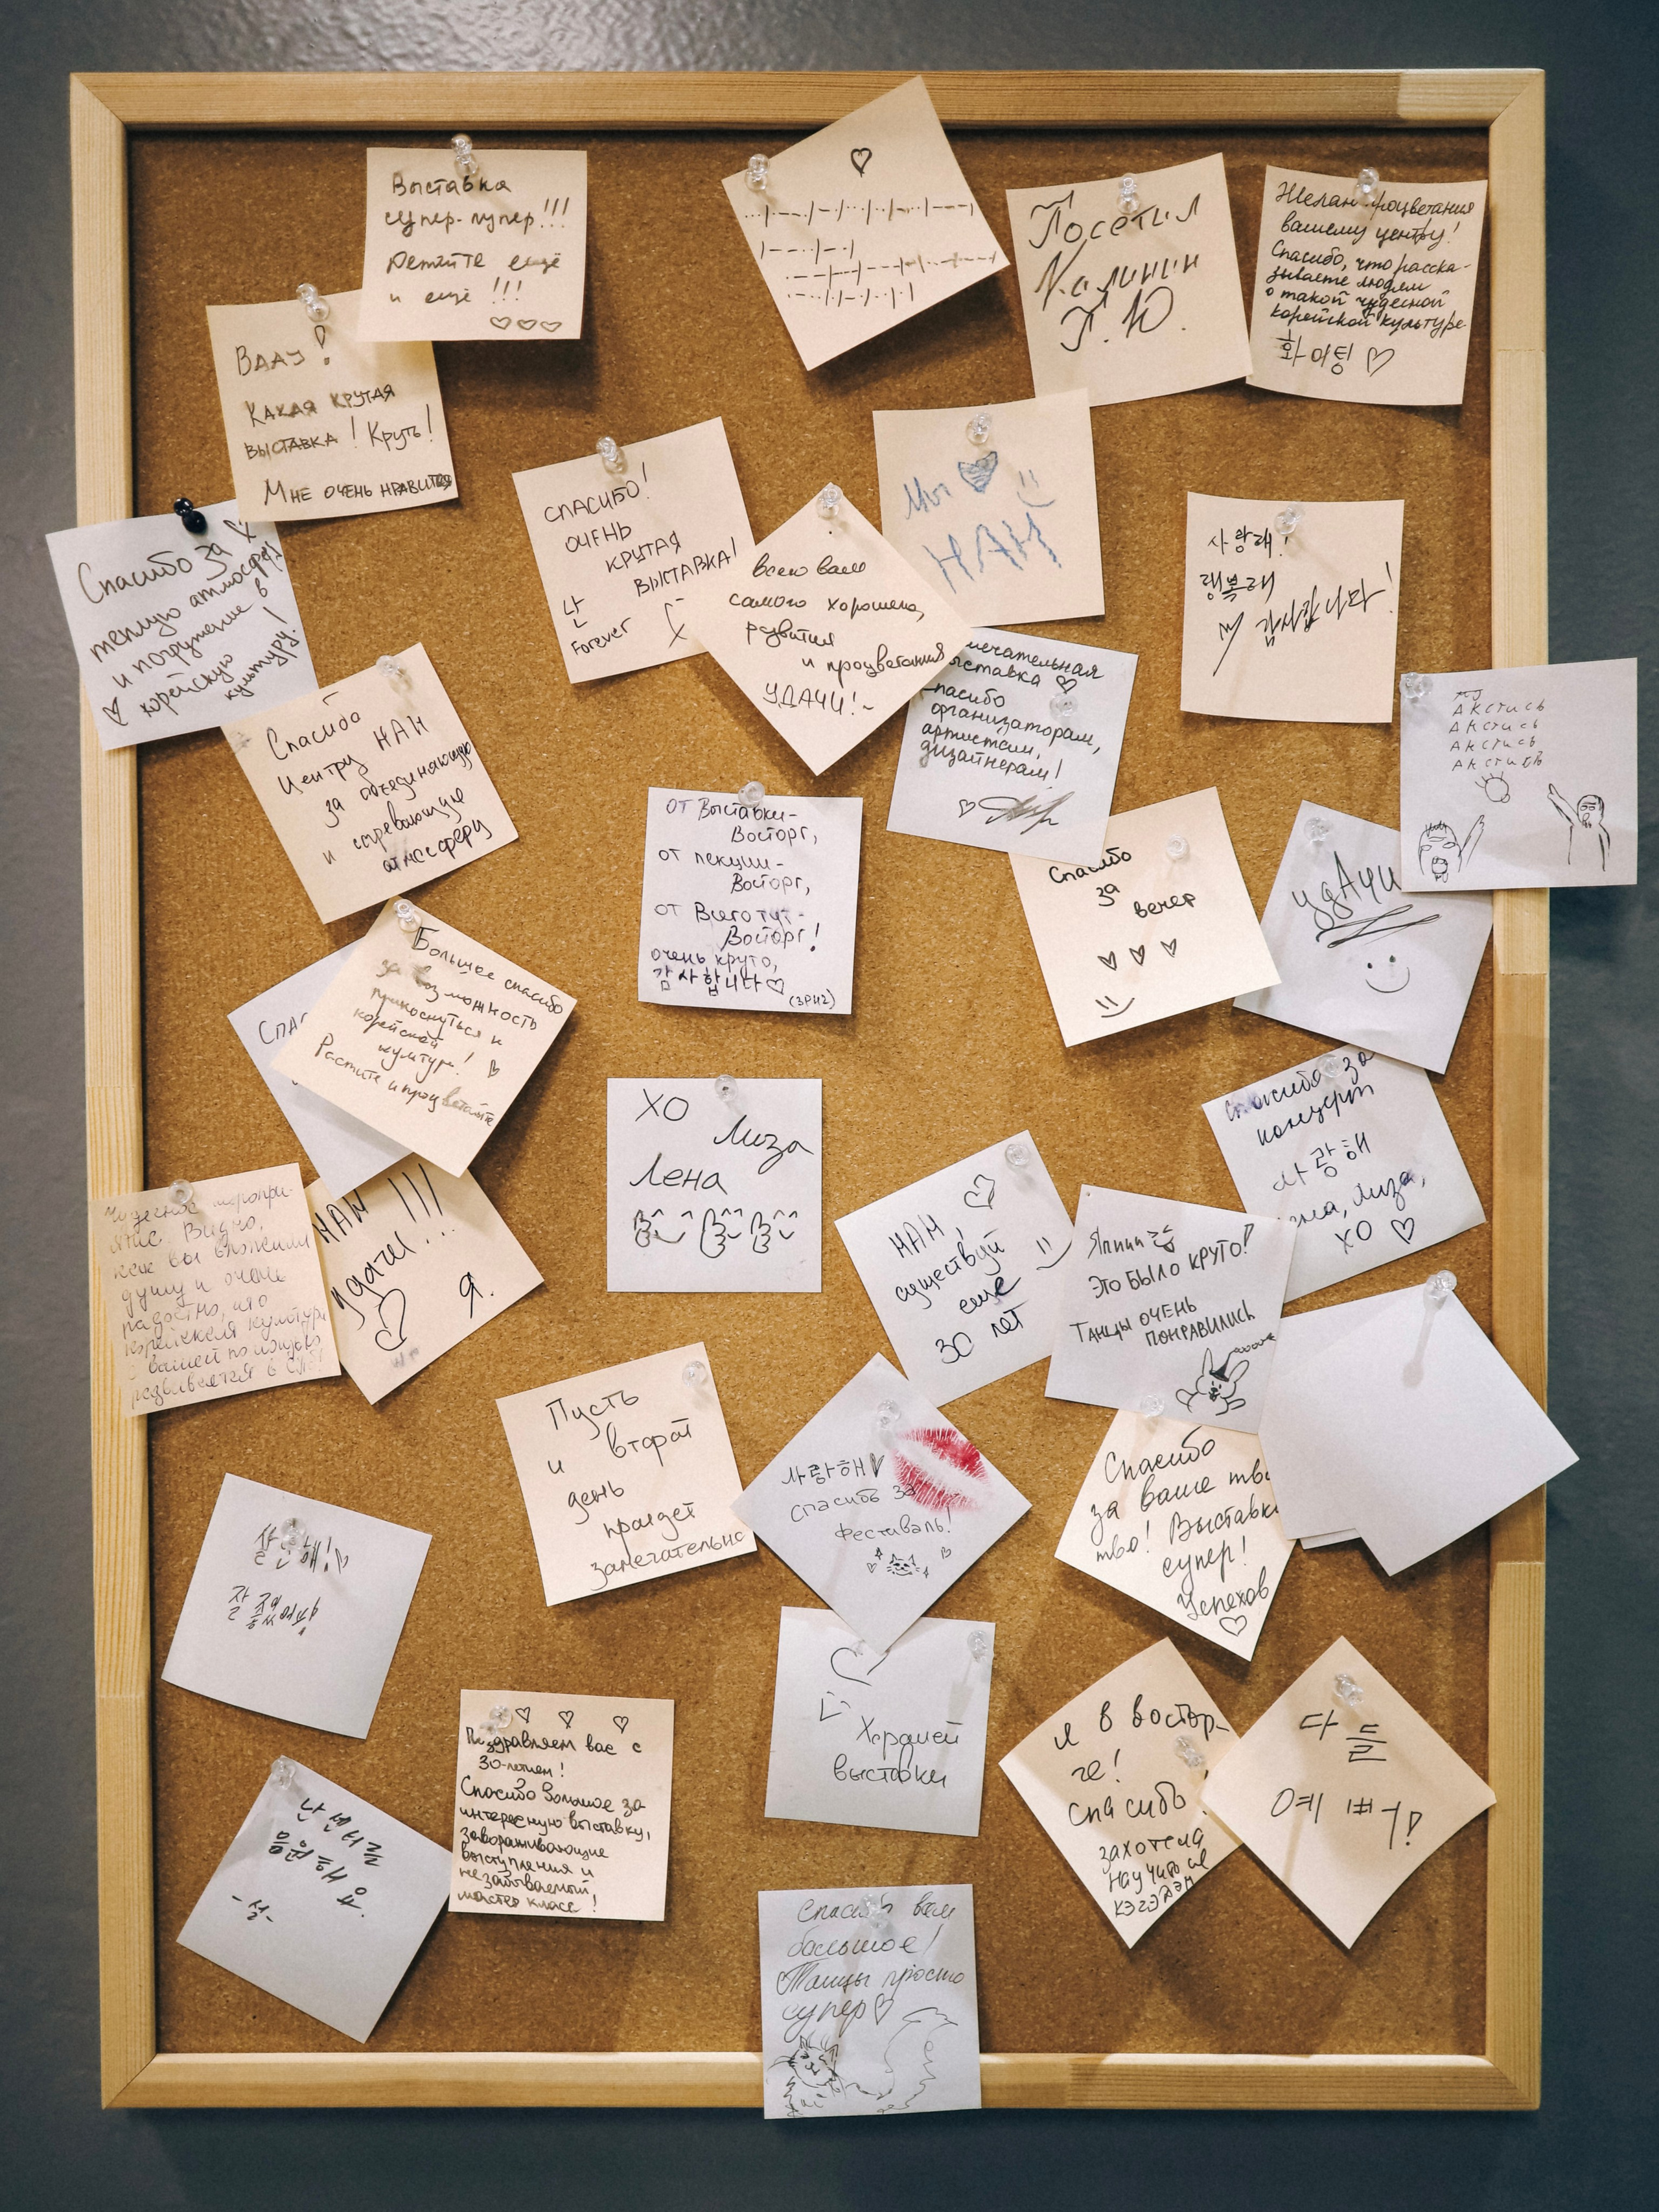 Выставка
супер-пупер!!!
ещё
и ещё!!!
Ваау!
Какая крутая
выставка! Круть!
Мне очень нравится
Посетил
Калинин
Г.Ю.
Желаю процветания
вашему центру!
Спасибо, что расска-
зываете людям
о такой чудесной
корейской культуре
화이팅
Спасибо за
теплую атмосферу
и погружение в
корейскую
культуру!
СПАСИБО!
ОЧЕНЬ
КРУТАЯ
ВЫСТАВКА!
난
Forever
всего вам
самого хорошего,
развития
и процветания
УДАЧИ!~
Мы
НАН
사랑해!
행복해
감사합니다!
Спасибо
Центру НАН
за объединяющую
и согревающую
атмосферу
мечательная
ыставка
Спасибо
организаторам,
артистам,
дизайнерам!
Акстись
Акстись
Акстись
Акстись
от Выставки-
Восторг,
от лекции-
Восторг,
от Всего тут-
Восторг!
очень круто,
감사합니다
Спасибо
за
вечер
удАчи
Большое спасибо
за возможность
прикоснуться к
корейской
культуре!
Растите и процветайте
СПАС
ХО
Лиза
Лена
Спасибо за
концерт
사랑해
Лиза,
ХО
Чудесное меропри-
ятие. Видно,
как вы вложили
душу и очень
радостно, что
корейская культура
с вашей помощью
развивается в СПб!
НАН !!!
Удачи!...
Я.
НАН,
существуй
ещё
30 лет
Япиии
Это было круто!
Танцы очень
понравились
Пусть
и второй
день
пройдет
замечательно
사랑해
спасибо за
фестиваль!
Спасибо
за ваше тво
тво! Выставка
супер!
Успехов
잘 했어!
Поздравляем вас с
30-летием!
Спасибо большое за
интересную выставку,
завораживающие
выступления и
незабываемый
мастер класс!
Хорошей
выставки
Я в востор-
ге!
спасибо!
захотела
научиться
다들
예뻐!
Спасибо вам
большое!
Танцы просто
супер